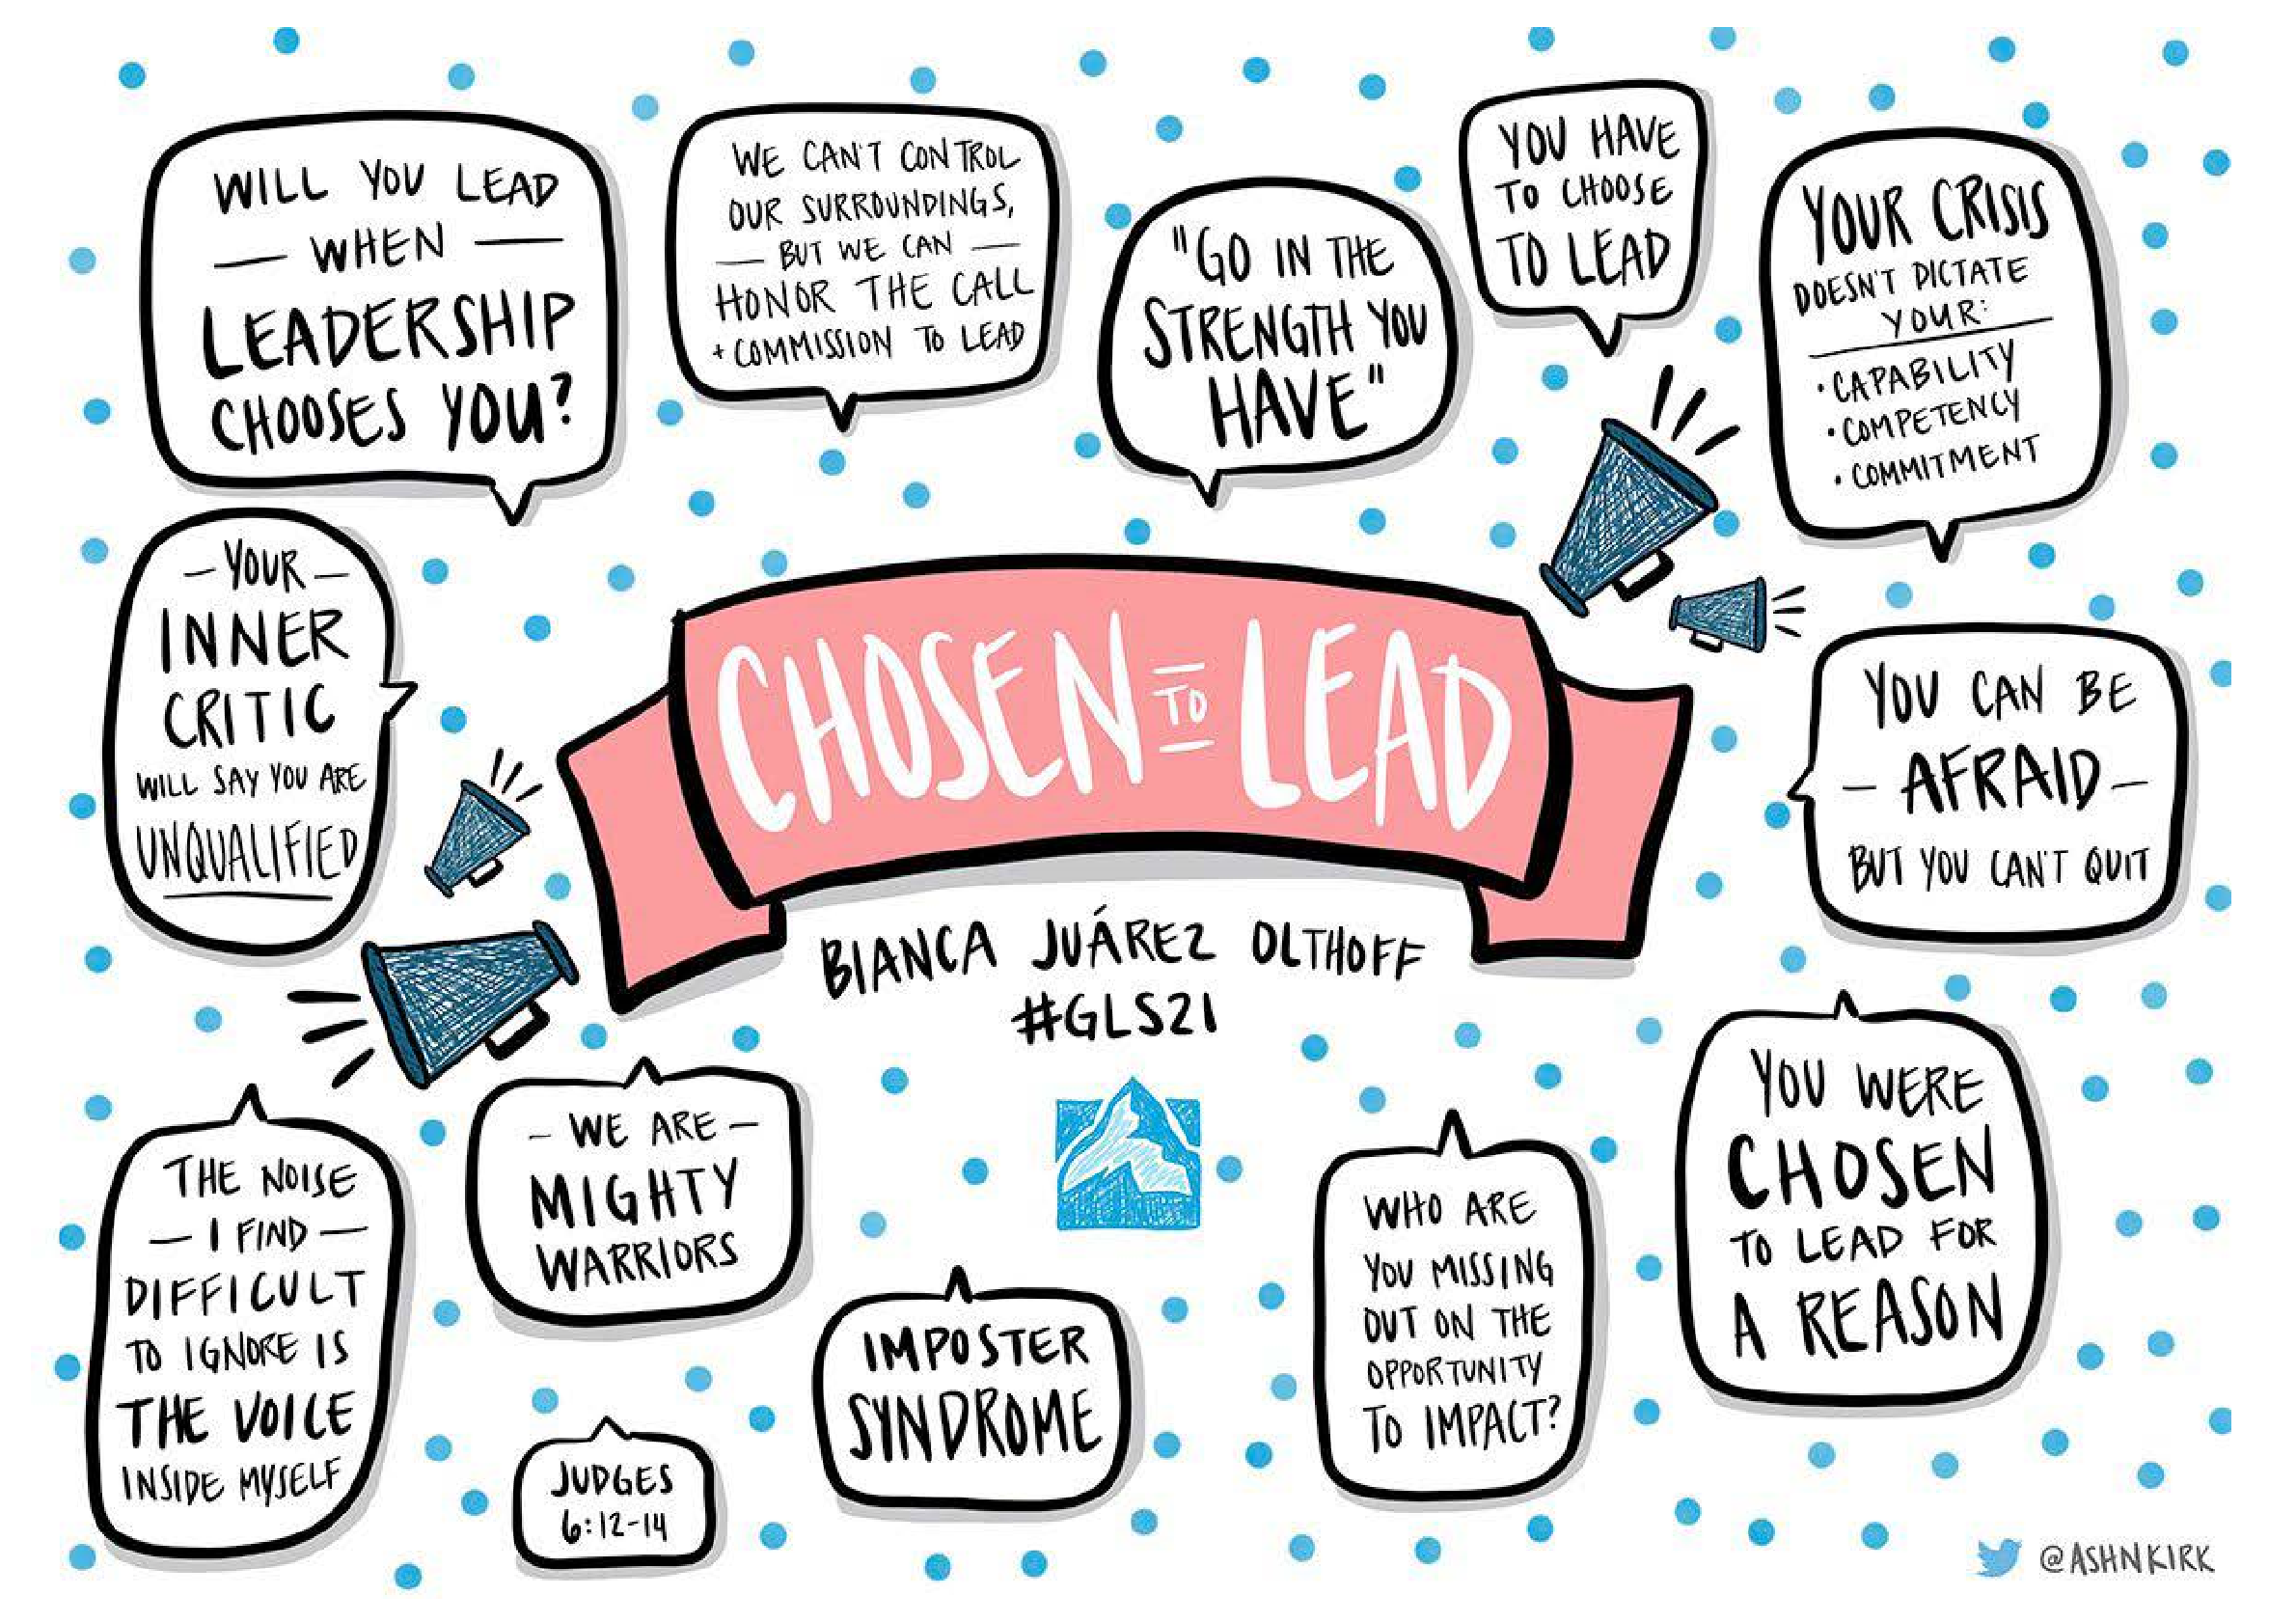 WILL YOU LEAD
— WHEN —
LEADERSHIP
CHOOSES YOU?
WE CAN'T CONTROL
OUR SURROUNDINGS,
— BUT WE CAN —
HONOR THE CALL
+ COMMISSION TO LEAD
"GO IN THE
STRENGTH YOU
HAVE"
YOU HAVE
TO CHOOSE
TO LEAD
YOUR CRISIS
DOESN'T DICTATE
YOUR:
• CAPABILITY
• COMPETENCY
• COMMITMENT
– YOUR –
INNER
CRITIC
WILL SAY YOU ARE
UNQUALIFIED
CHOSEN TO LEAD
BIANCA JUÁREZ OLTHOFF
#GLS21
YOU CAN BE
– AFRAID –
BUT YOU CAN'T QUIT
THE NOISE
— I FIND —
DIFFICULT
TO IGNORE IS
THE VOICE
INSIDE MYSELF
– WE ARE –
MIGHTY
WARRIORS
JUDGES
6:12-14
IMPOSTER
SYNDROME
WHO ARE
YOU MISSING
OUT ON THE
OPPORTUNITY
TO IMPACT?
YOU WERE
CHOSEN
TO LEAD FOR
A REASON
@ASHNKIRK